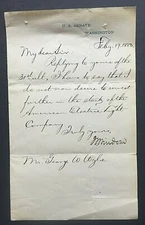 U.S. SENATE
WASHINGTON
Feby 19, 188
My dear Sir
Replying to yours of the
30th ult, I have to say that I do
not now desire to invest
further in the stock of the
American Electric Light
Company
Truly yours
Windom
Mr. George W.